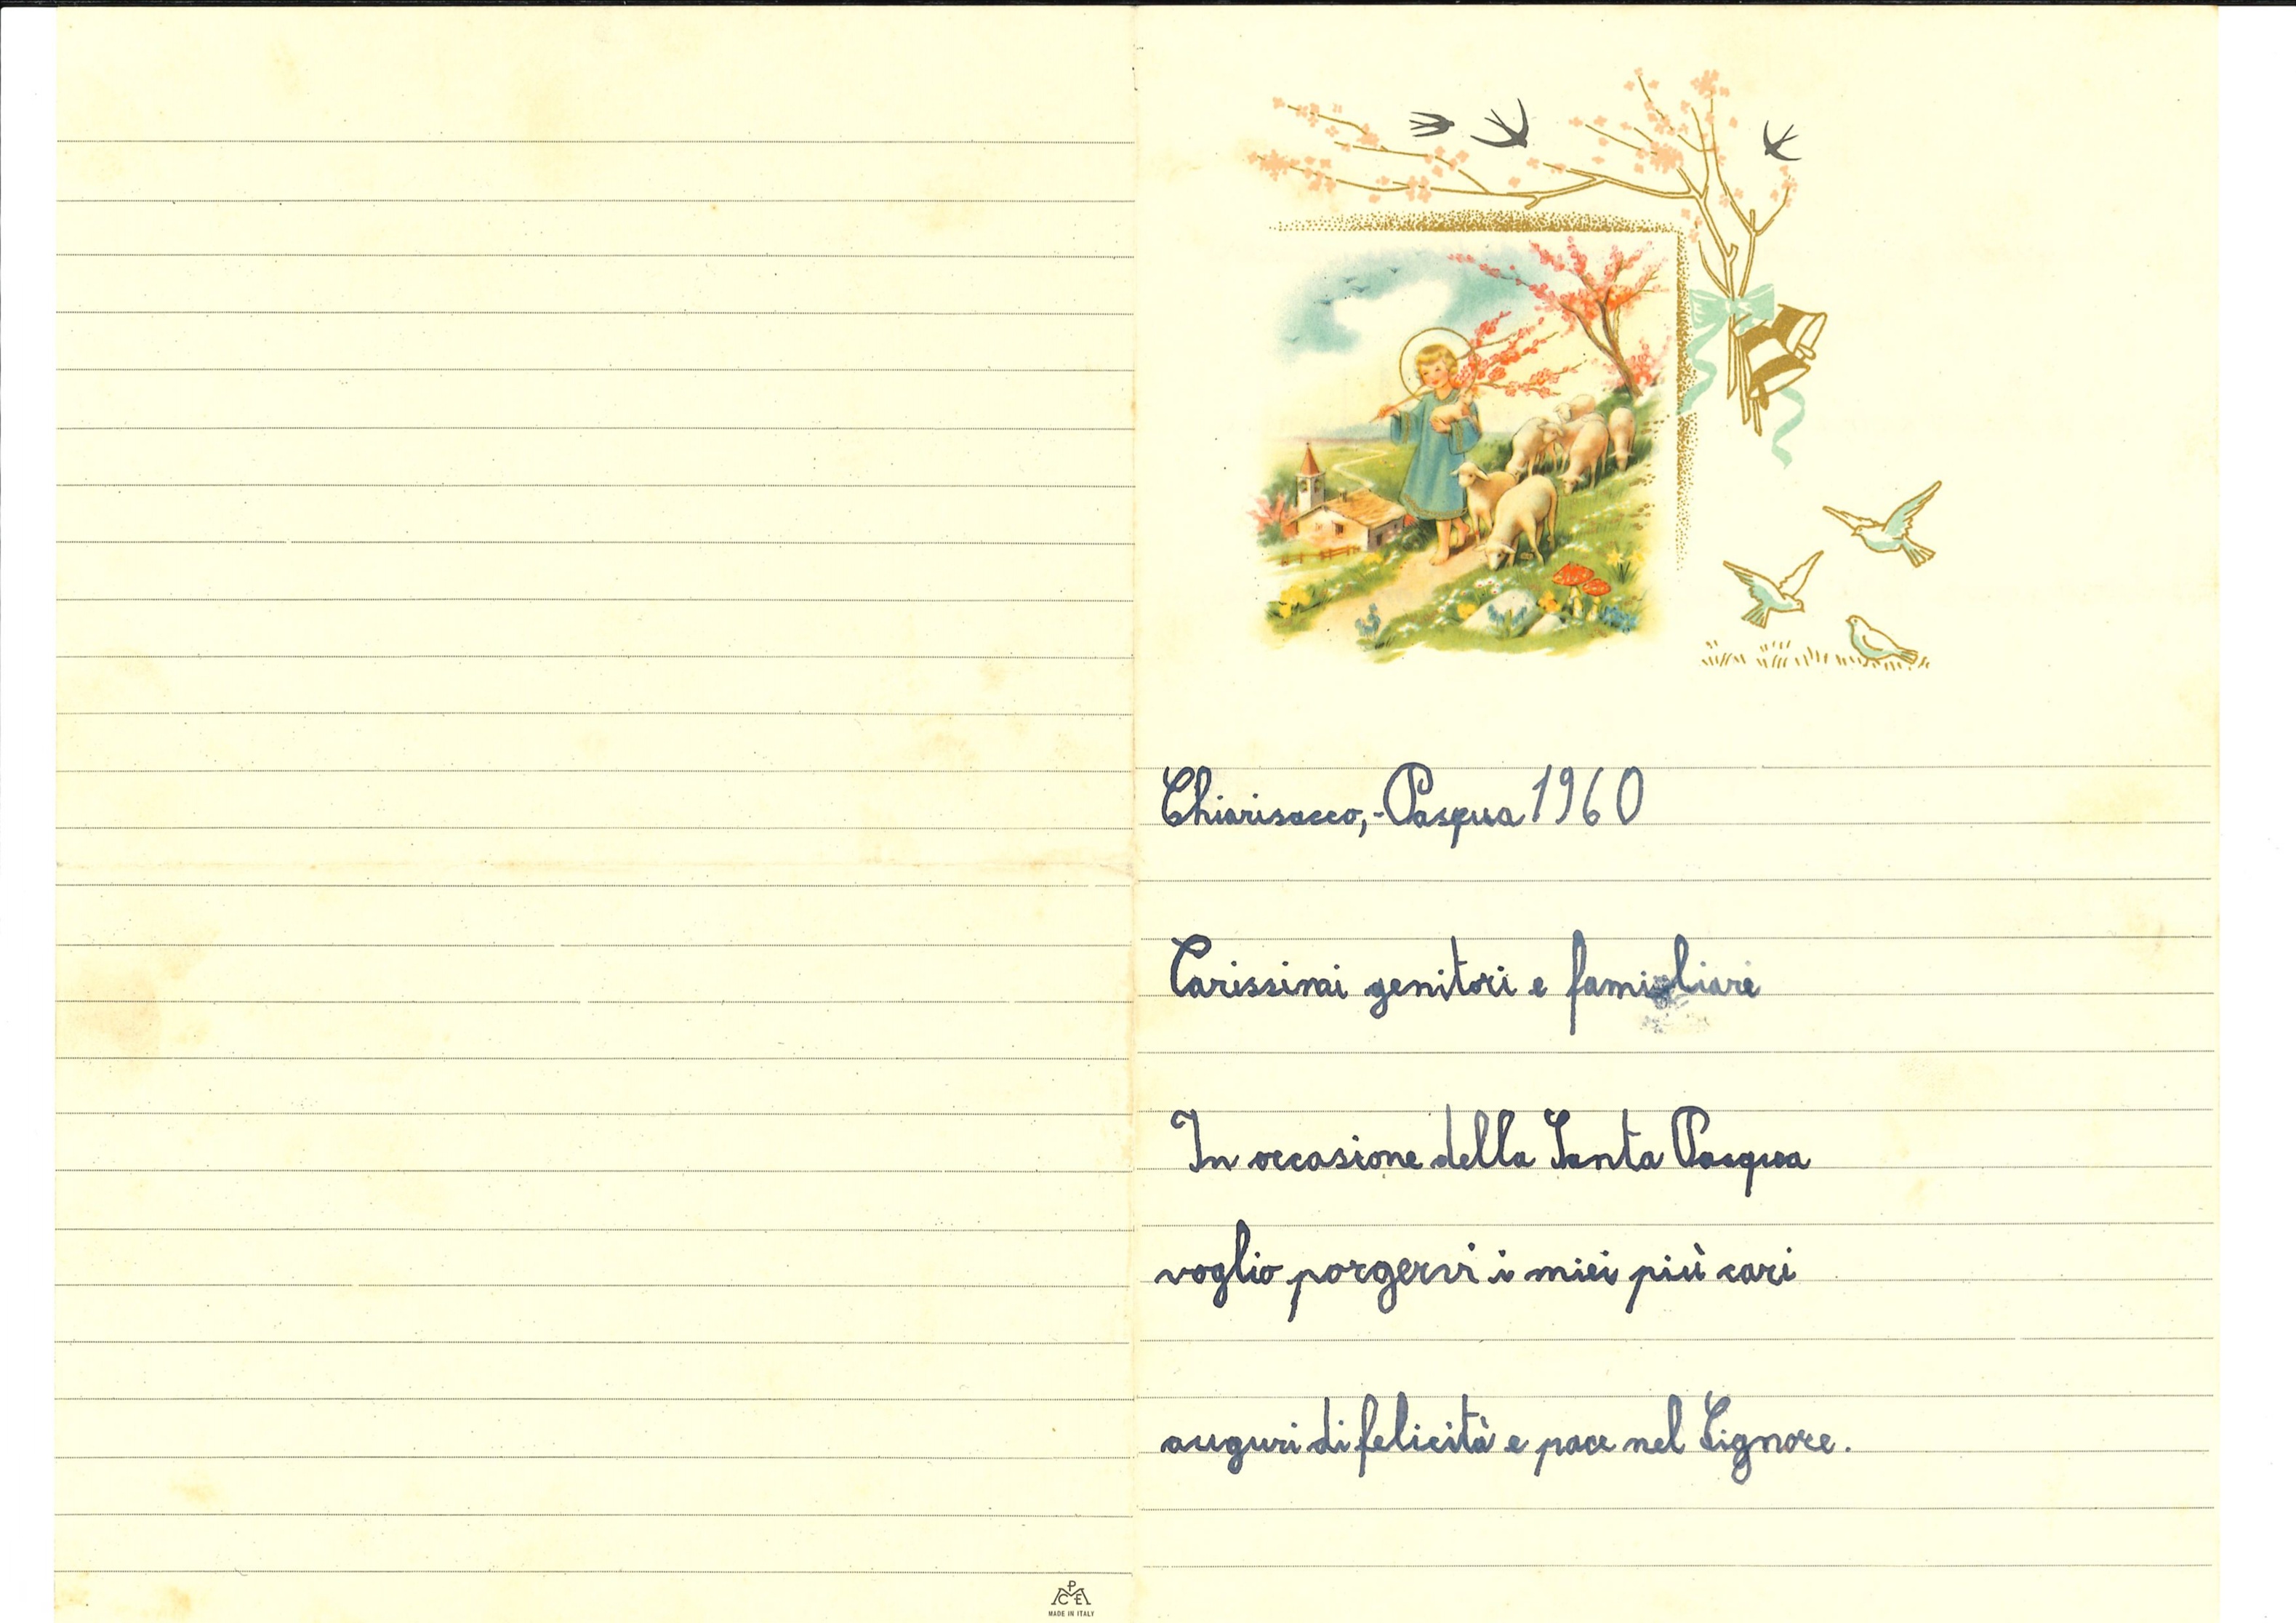 Chiarisacco,-Pasqua 1960
Carissimi genitori e famigliari
In occasione della Santa Pasqua
voglio porgervi i miei più cari
auguri di felicità e pace nel Signore.
MADE IN ITALY